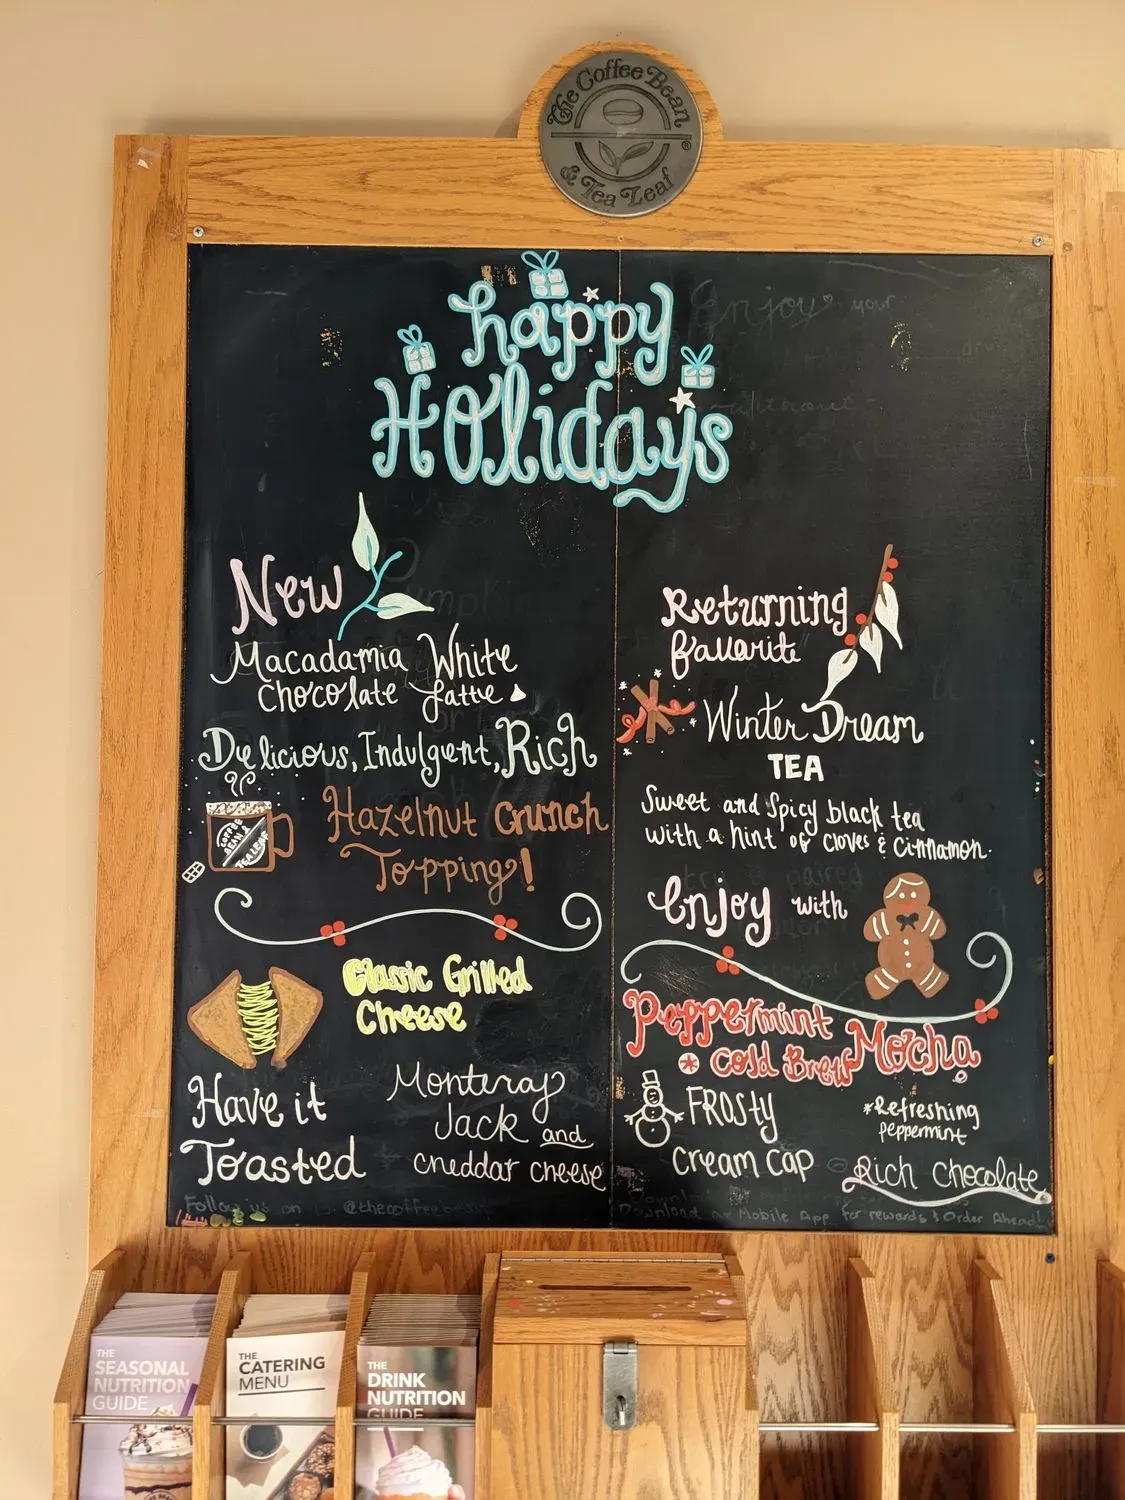 The Coffee Bean
& Tea Leaf
®
happy
Holidays
Enjoy your
New
Macadamia White
Chocolate Latte
Delicious, Indulgent, Rich
Hazelnut Crunch
Topping!
COFFEE
BEAN &
TEA LEAF
Classic Grilled
Cheese
Have it
Toasted
Monteray
Jack and
cheddar cheese
Follow us on @thecoffeebean
Returning
favorite
Winter Dream
TEA
Sweet and Spicy black tea
with a hint of cloves & Cinnamon.
Enjoy with
Peppermint Mocha
Cold Brew
FROSTY
Cream Cap
*Refreshing
peppermint
Rich Chocolate
Download our Mobile App for rewards & Order Ahead!
THE
SEASONAL
NUTRITION
GUIDE
THE
CATERING
MENU
THE
DRINK
NUTRITION
GUIDE